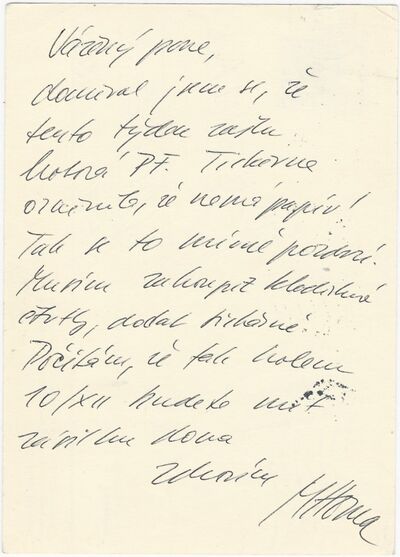 Vážený pane,
domníval jsem se, že
tento týden zašlu
hotová PF. Tiskárna
oznámila, že nemá papír!
Tak se to mírně pozdrží.
Musím zakoupit kladívkové
čtvrtky, dodat tiskárně.
Počítám, že tak kolem
10/XII budete mít
zásilku doma
Zdravím